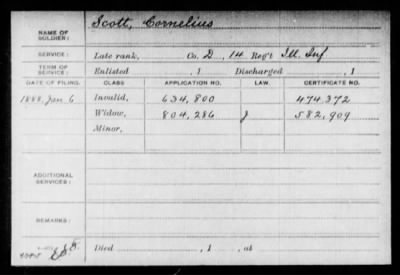 NAME OF SOLDIER: Scott, Cornelius
SERVICE: Late rank, Co. D, 14 Reg't Ill. Inf
TERM OF SERVICE: Enlisted , 1 Discharged , 1
DATE OF FILING. CLASS APPLICATION NO. LAW. CERTIFICATE NO.
1888, Jan. 6 Invalid, 634,800 474,372
Widow, 804,286 J 582,909
Minor,
ADDITIONAL SERVICES:
REMARKS:
Died , 1 , at